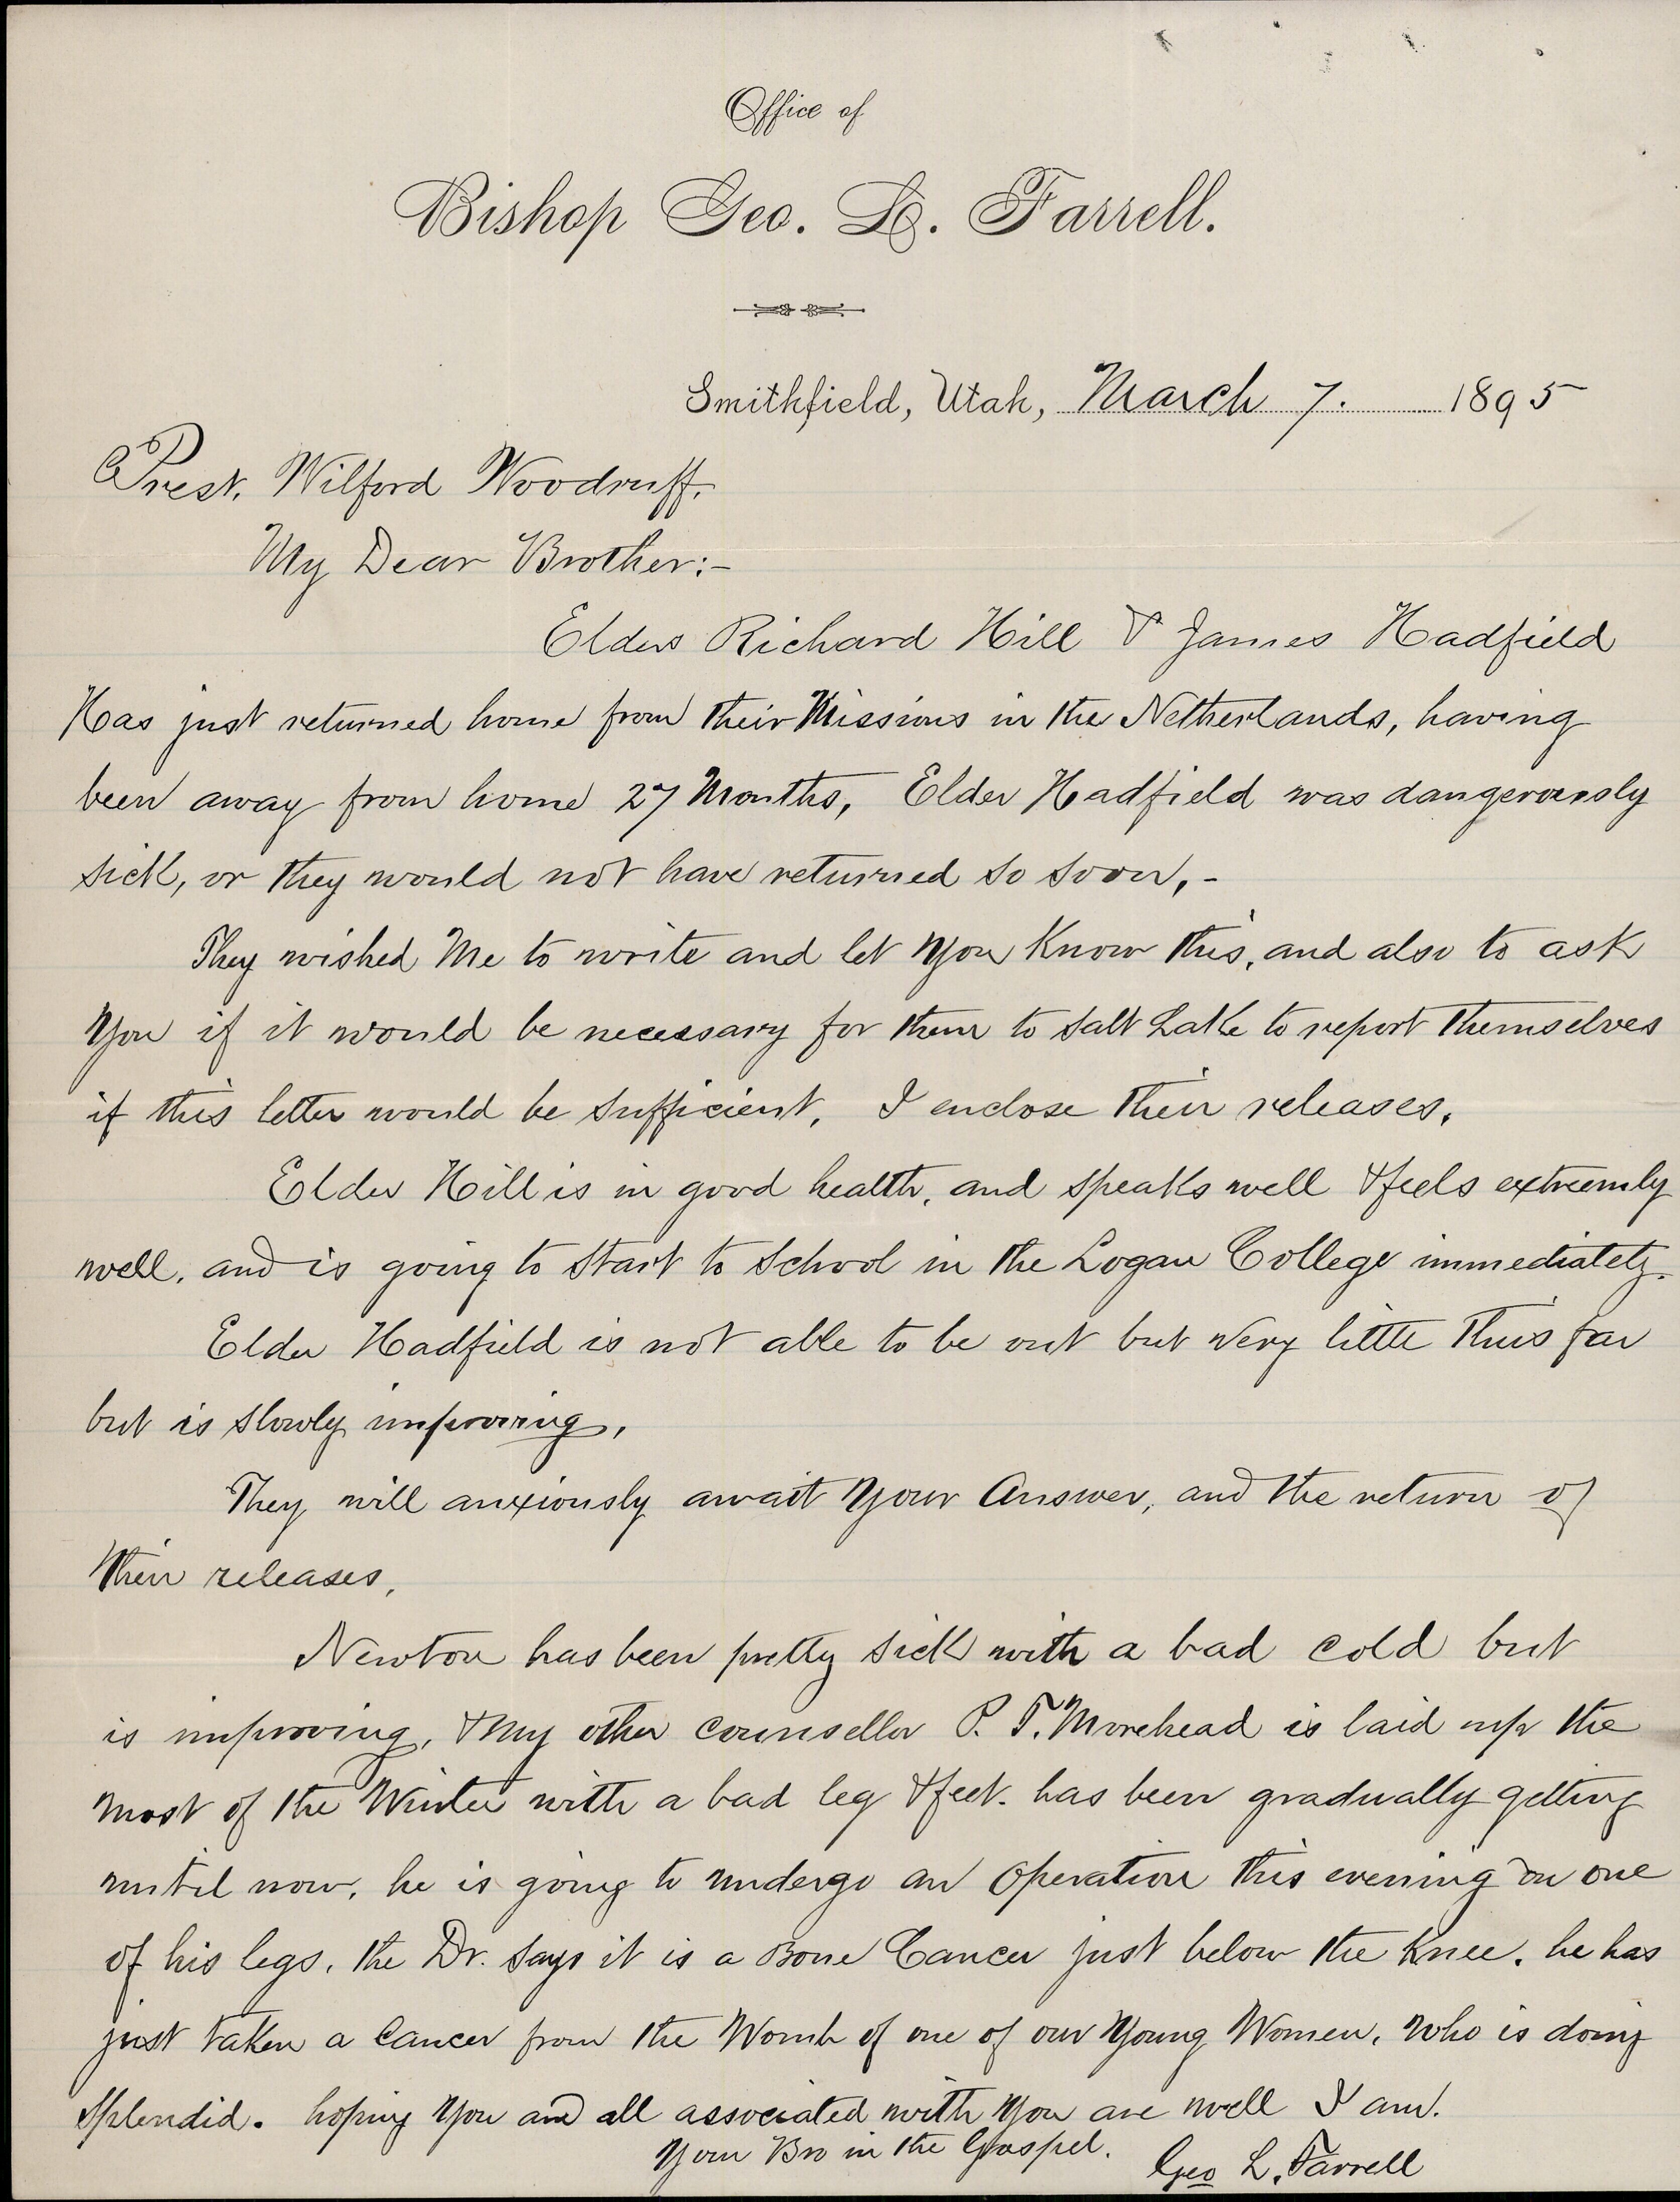 Office of
Bishop Geo. L. Farrell.
Smithfield, Utah, March 7. 1895
Prest. Wilford Woodruff.
My Dear Brother:-
Elders Richard Hill & James Hadfield
Has just returned home from their Missions in the Netherlands, having
been away from home 27 Months, Elder Hadfield was dangerously
sick, or they would not have returned so soon, -
They wished Me to write and let you Know this, and also to ask
you if it would be necessary for them to Salt Lake to report themselves
if this letter would be sufficient, I enclose their releases.
Elder Hill is in good health, and speaks well & feels extreemly
well, and is going to start to School in the Logan College immediately.
Elder Hadfield is not able to be out but very little thus far
but is slowly improving,
They will anxiously await your Answer, and the return of
their releases,
Newton has been pretty sick with a bad cold but
is improving, & My other counsellor P. T. Morehead is laid up the
most of the Winter with a bad leg & feet. has been gradually getting
until now, he is going to undergo an operation this evening on one
of his legs, the Dr. says it is a Bone Cancer just below the Knee. he has
just taken a Cancer from the Womb of one of our Young Women, who is doing
Splendid. hoping you and all associated with you are well I am.
Your Bro in the Gospel.
Geo L. Farrell